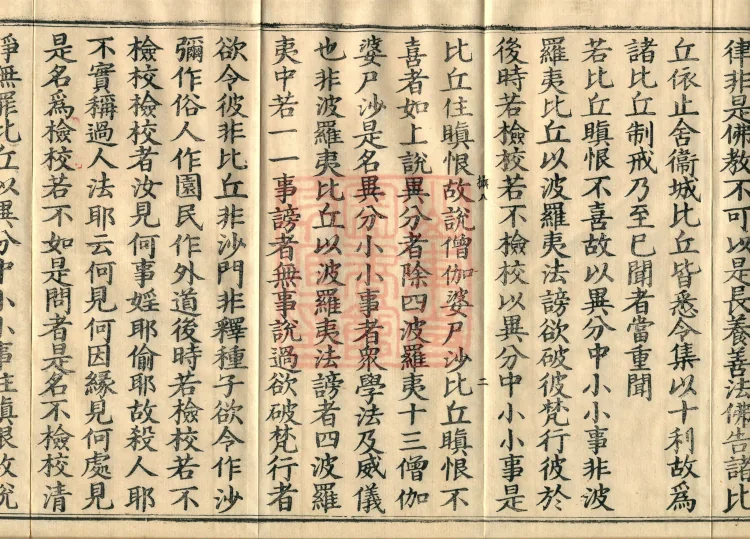 律非是佛教不可以是長養善法佛告諸比
丘依止舍衞城比丘皆悉令集以十利故爲
諸比丘制戒乃至已聞者當重聞
若比丘瞋恨不喜故以異分中小小事非波
羅夷比丘以波羅夷法謗欲破彼梵行彼於
後時若檢校若不檢校以異分中小小事是
比丘住瞋恨故說僧伽婆尸沙比丘瞋恨不
喜者如上說異分者除四波羅夷十三僧伽
婆尸沙是名異分小小事者眾學法及威儀
也非波羅夷比丘以波羅夷法謗者四波羅
夷中若一一事謗者無事說過欲破梵行者
欲令彼非比丘非沙門非釋種子欲令作沙
彌作俗人作園民作外道後時若檢校若不
檢校檢校者汝見何事婬耶偷耶故殺人耶
不實稱過人法耶云何見何因緣見何處見
是名爲檢校若不如是問者是名不檢校清
淨無罪比丘以異分中小小事住瞋恨故說
二